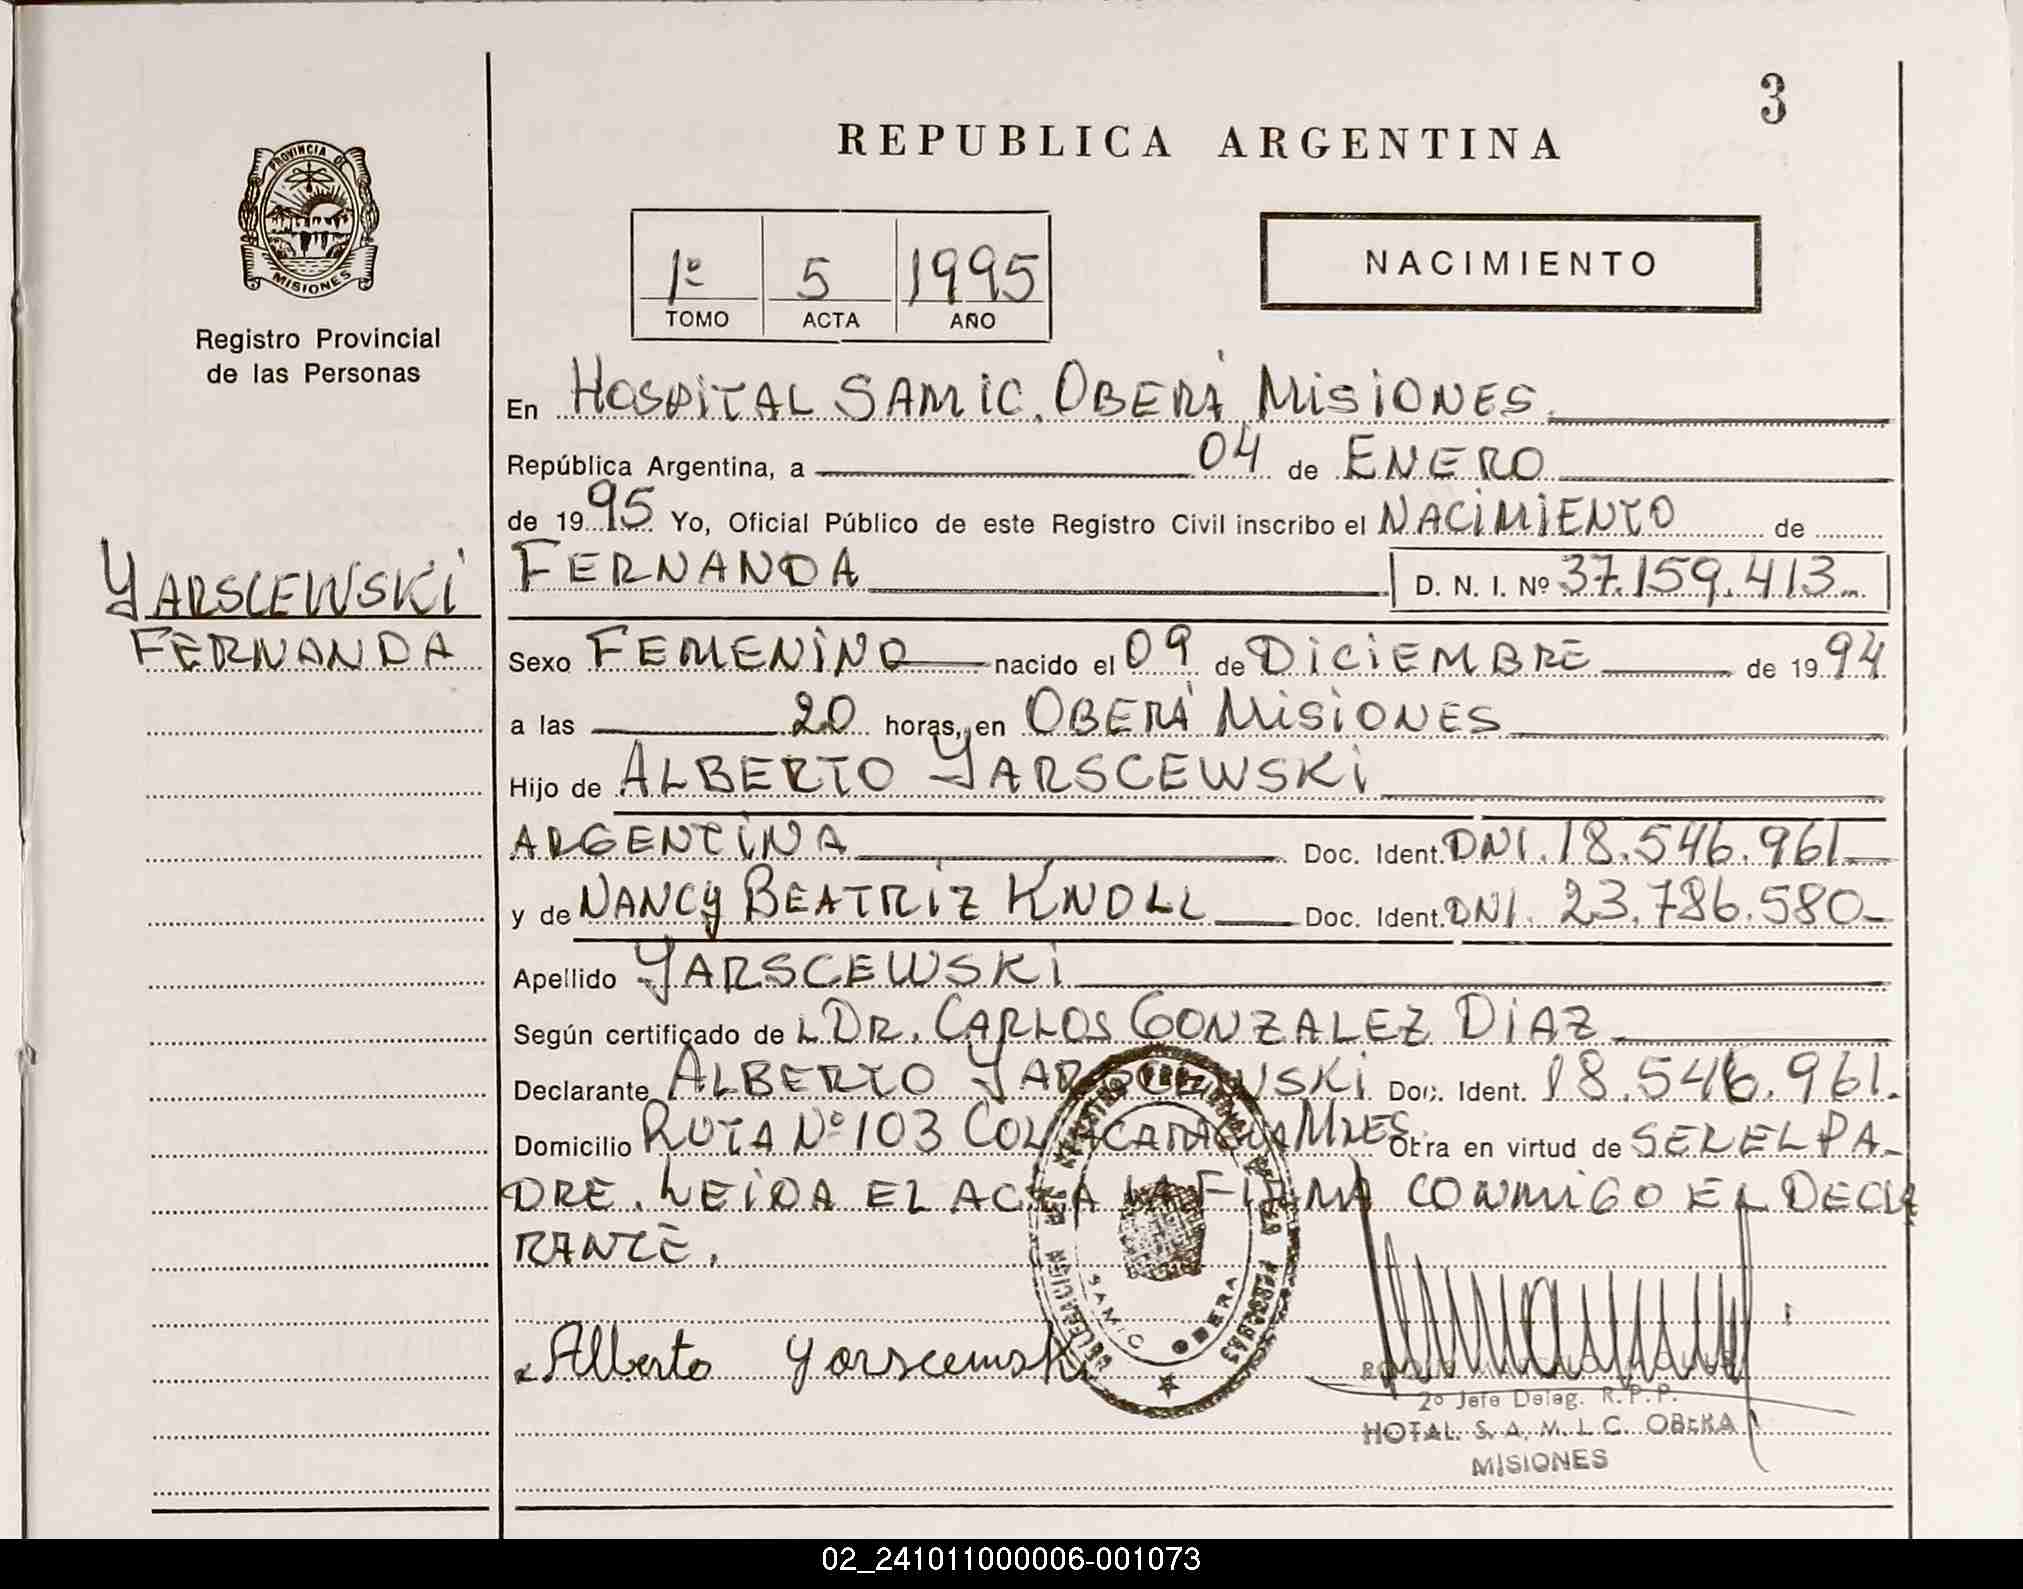 3
REPUBLICA ARGENTINA
PROVINCIA DE
MISIONES
Registro Provincial
de las Personas
1º 5 1995
TOMO ACTA AÑO
NACIMIENTO
En HOSPITAL SAMIC. OBERÁ MISIONES.
República Argentina, a 04 de ENERO
de 1995 Yo, Oficial Público de este Registro Civil inscribo el NACIMIENTO de
YARSCEWSKI
FERNANDA
FERNANDA D. N. I. Nº 37.159.413
Sexo FEMENINO nacido el 09 de DICIEMBRE de 1994
a las 20 horas, en OBERÁ MISIONES
Hijo de ALBERTO YARSCEWSKI
ARGENTINA Doc. Ident. DNI. 18.546.961
y de NANCY BEATRIZ KNOLL Doc. Ident. DNI. 23.786.580
Apellido YARSCEWSKI
Según certificado de L DR. CARLOS GONZALEZ DIAZ
Declarante ALBERTO YARSCEWSKI Doc. Ident. 18.546.961.
Domicilio RUTA Nº 103 COL ACARAGUA MNES. Obra en virtud de SER EL PA-
DRE. LEIDA EL ACTA LA FIRMA CONMIGO EL DECLA
RANTE.
DELEGACION DEL REGISTRO PROVINCIAL DE LAS PERSONAS
SAMIC OBERA
Alberto Yarscewski
2º Jefe Deleg. R.P.P.
HOTAL. S. A. M. I. C. OBERA
MISIONES
02_241011000006-001073